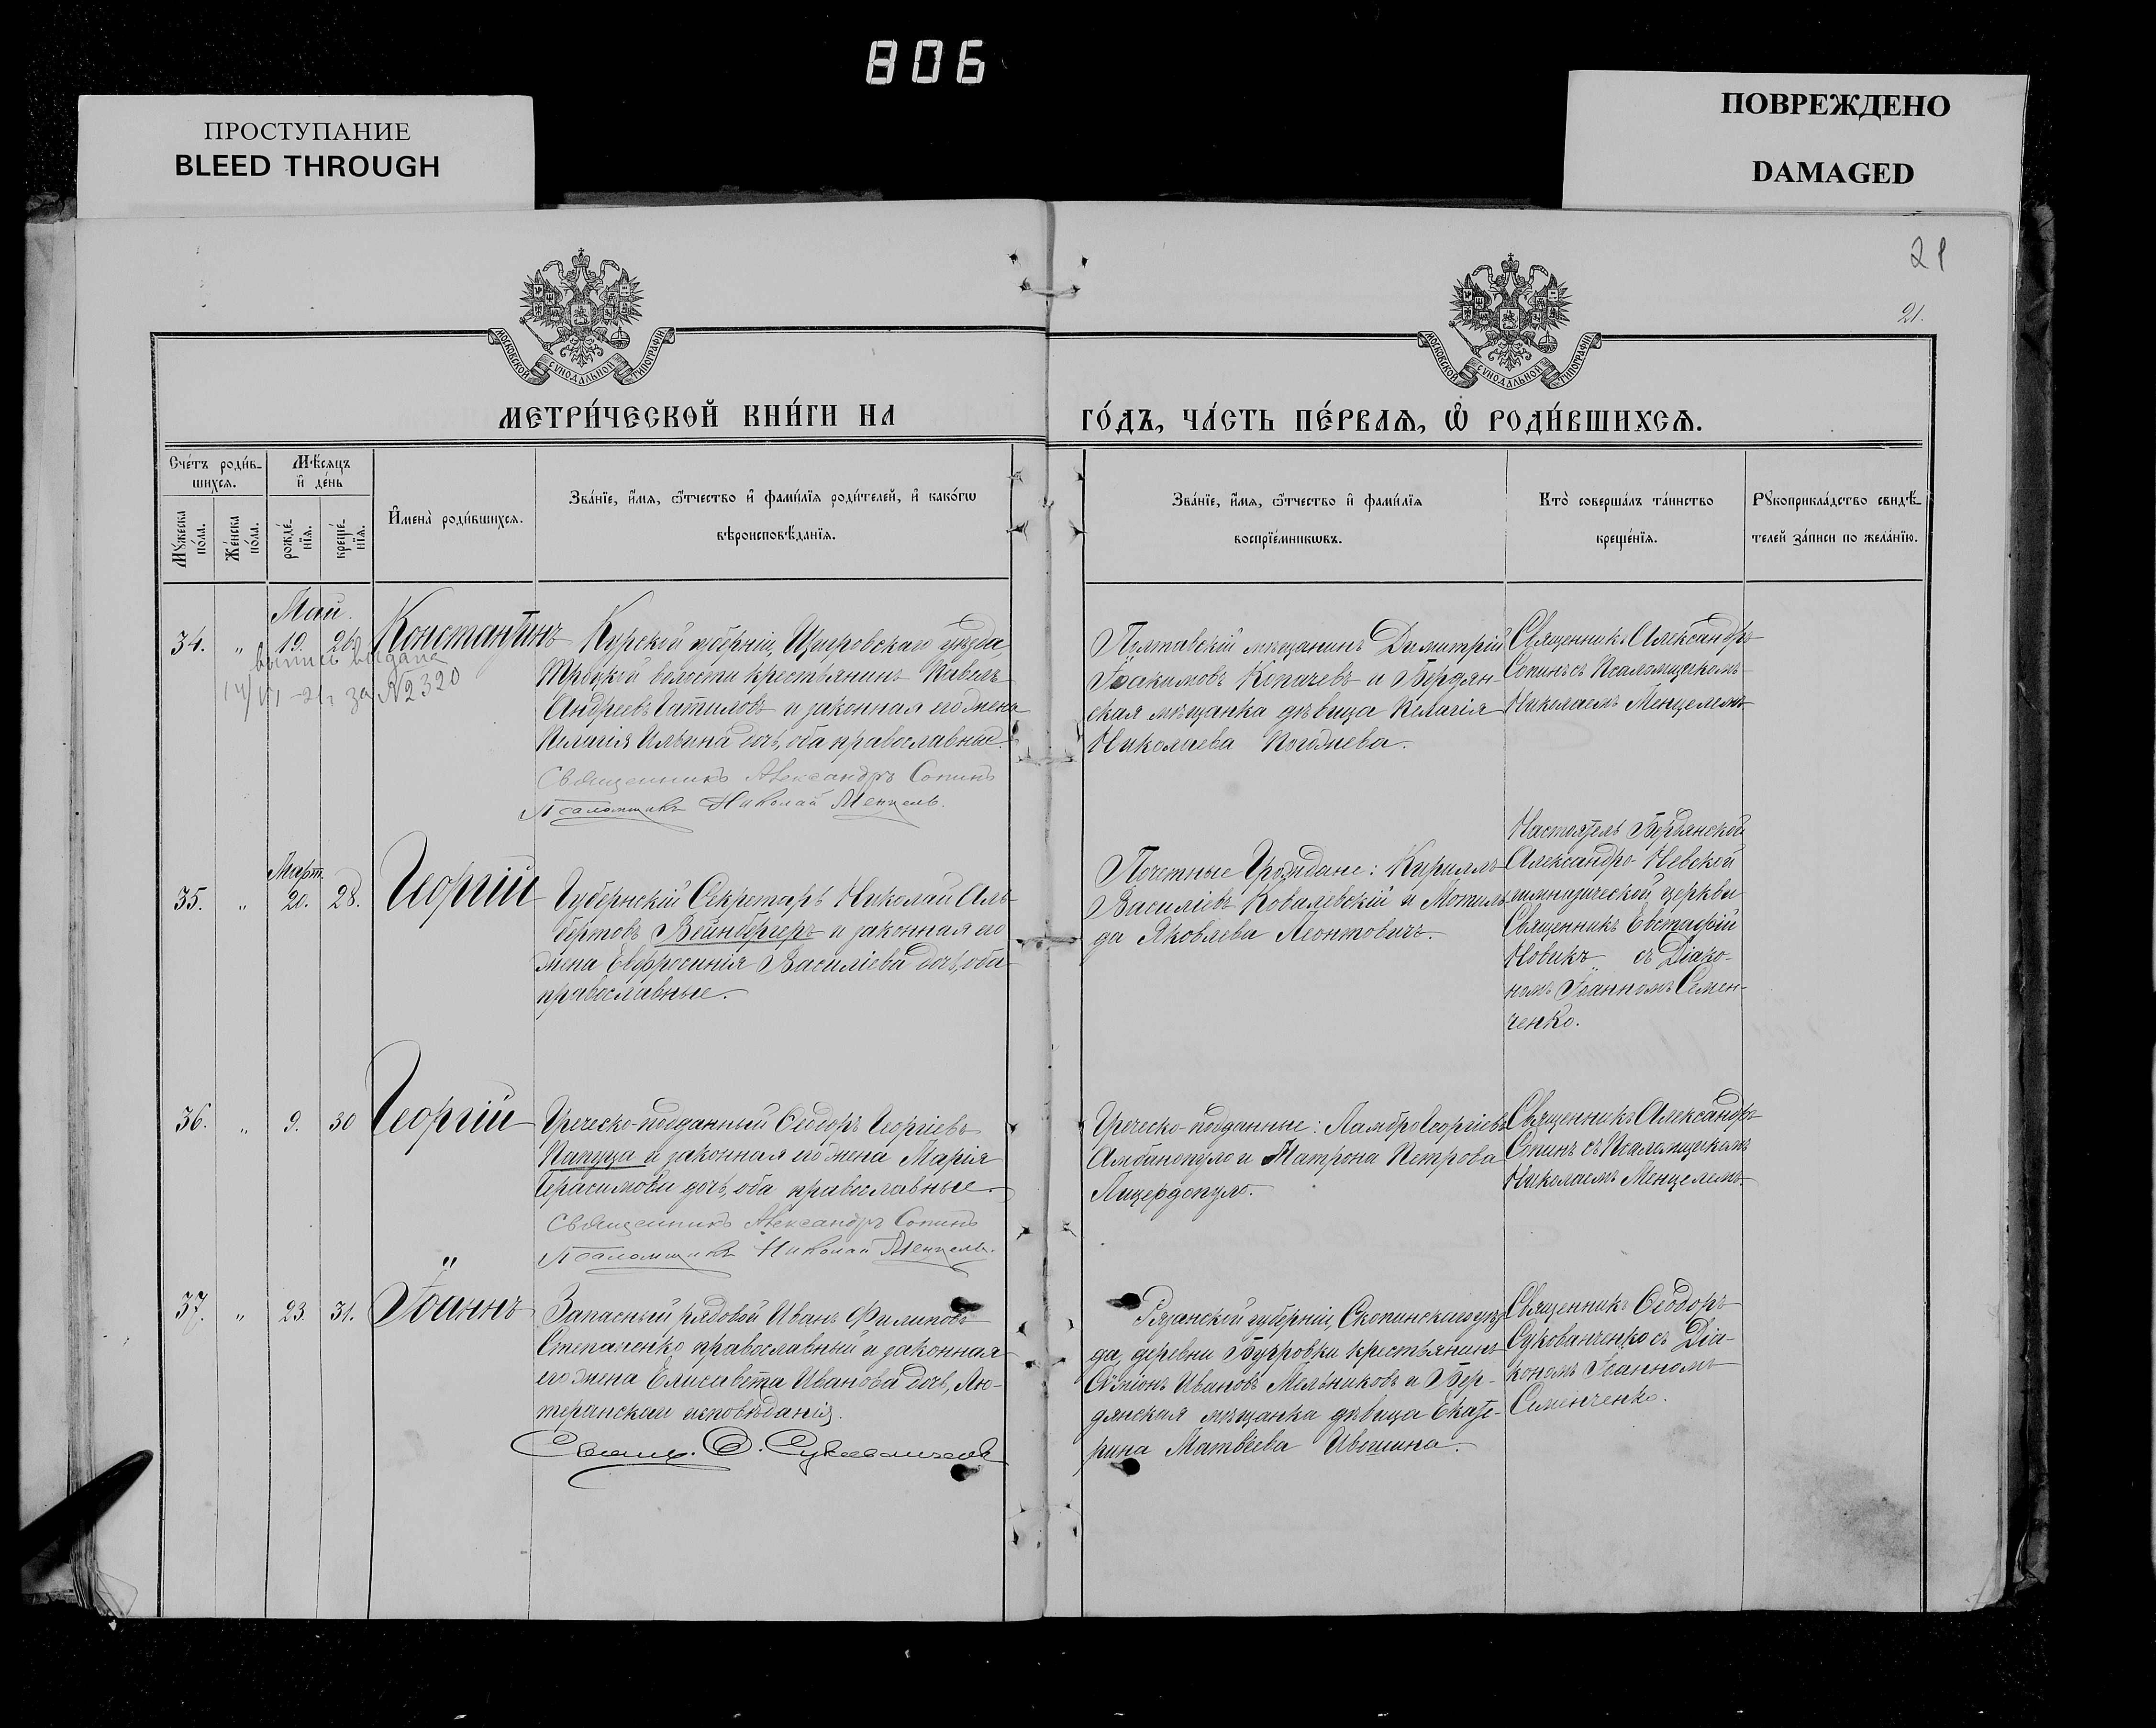 806
ПРОСТУПАНИЕ
BLEED THROUGH
ПОВРЕЖДЕНО
DAMAGED
21
21.
МОСКОВСКОЙ СѴНОДАЛЬНОЙ ТИПОГРАФІИ
МОСКОВСКОЙ СѴНОДАЛЬНОЙ ТИПОГРАФІИ
МЕТРИ́ЧЕСКОЙ КНИ́ГИ НА
ГО́ДЪ, ЧА́СТЬ ПЕ́РВАѦ, Ѡ҆ РОДИ́ВШИХСѦ.
Сче́тъ роди́в-
шихсѧ.
Мѣ́сѧцъ
и҆ де́нь
Мꙋ́жеска
по́ла.
Же́нска
по́ла.
рожде́-
нїѧ.
креще́-
нїѧ.
И҆мена̀ роди́вшихсѧ.
Зва́нїе, и҆́мѧ, ѻ҆́тчество и҆ фами́лїѧ роди́телей, и҆ како́гѡ
вѣроисповѣ́данїѧ.
Зва́нїе, и҆́мѧ, ѻ҆́тчество и҆ фами́лїѧ
воспрїе́мникѡвъ.
Кто̀ соверша́лъ та́инство
креще́нїѧ.
Рꙋкоприкла́дство свидѣ́-
телей за́писи по жела́нїю.
Май.
34. " 19. 26. Константинъ
Курской губерніи, Щигровскаго уѣзда
волости крестьянинъ Павелъ
Андреевъ и законная его жена
Пелагія Ильина дочь, оба православные.
Священникъ Александръ Сопинъ
Псаломщикъ Николай Менцель.
выдана
за №2320
Полтавскій мѣщанинъ Димитрій
Іоакимовъ Копачевъ и Бердян-
ская мѣщанка дѣвица Пелагія
Николаева
Священникъ Александръ
Сопинъ съ Псаломщикомъ
Николаемъ Менцелемъ
Март.
35. " 20. 28. Георгій
Губернскій Секретарь Николай Аль-
бертовъ Вейнбергеръ и законная его
жена Евфросинія Василіева дочь, оба
православные.
Почетные Граждане: Кириллъ
Василіевъ Ковалевскій и Мотиль-
да Яковлева Леонтовичъ.
Настоятель Бердянской
Александро-Невской
гимназической церкви
Священникъ Евстафій
Новикъ съ Діако-
номъ Іоанномъ Семен-
ченко.
36. " 9. 30 Георгій
Греческо-подданный Ѳеодоръ Георгіевъ
Папуца и законная его жена Марія
Герасимова дочь, оба православные.
Священникъ Александръ Сопинъ
Псаломщикъ Николай Менцель.
Греческо-подданные: Ламбро Георгіевъ
Амбанопуло и Матрона Петрова
Священникъ Александръ
Сопинъ съ Псаломщикомъ
Николаемъ Менцелемъ.
37. " 23. 31. Іоаннъ
Запасный рядовой Иванъ Филиповъ
Степаненко православный и законная
его жена Елисавета Иванова дочь, Лю-
теранскаго исповѣданія.
Свящ. Ѳ. Сукованченко
Рязанской губерніи, Скопинскаго уѣз-
да, деревни крестьянинъ
Сѵмеонъ Ивановъ Мельниковъ и Бер-
дянская мѣщанка дѣвица Екате-
рина Матвѣева Ивошина.
Священникъ Ѳеодоръ
Сукованченко съ Діа-
кономъ Іоанномъ
Семенченко.